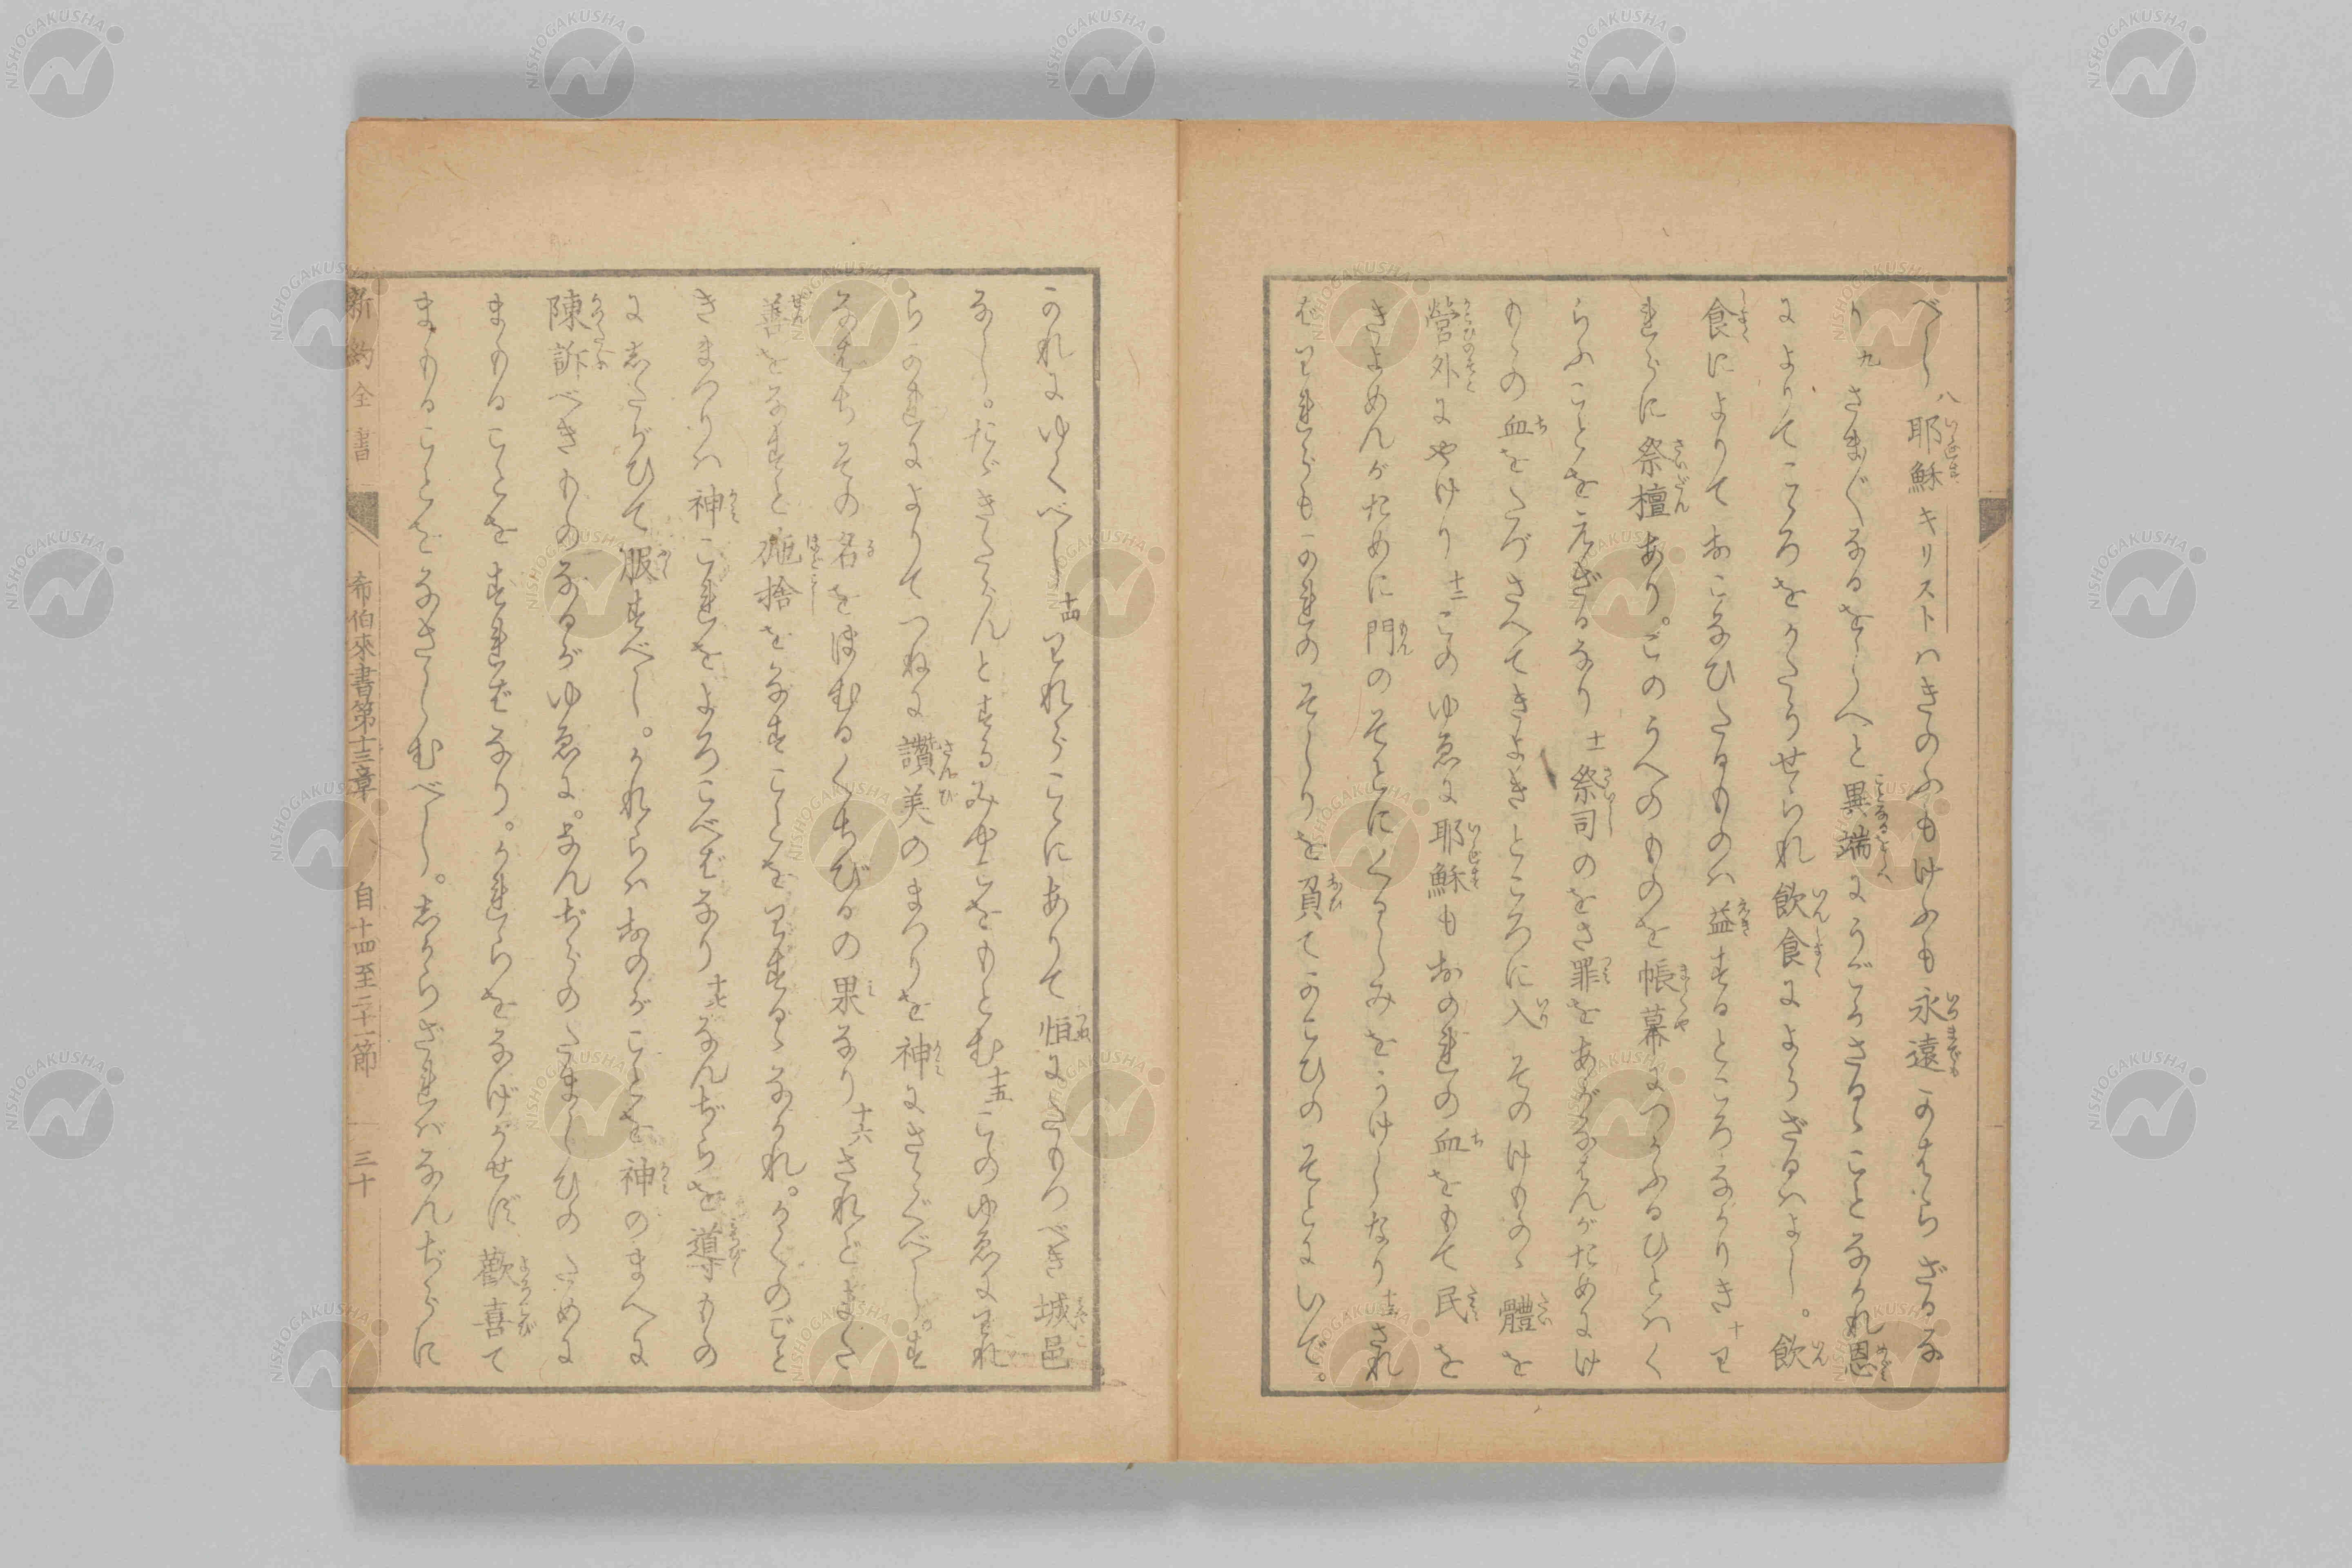 べし 八 耶穌キリストハきのふもけふも永遠かはらざるな
り 九 さまざまなるをしへと異端にうごかさるゝことなかれ恩
によりてこころをかたうせられ飲食によらざるハよし。飲
食によりておこなひたるものハ益するところなかりき 十 わ
れらに祭壇あり。このうへのものを帳幕につかふるひとハく
らふことをえざるなり 十一 祭司のをさ罪をあがなはんがためにけ
ものの血をたづさへてきよきところに入そのけものゝ體を
營外にやけり 十二 このゆゑに耶穌もおのれの血をもて民を
きよめんがために門のそとにくるしみをうけしなり 十三 され
ばわれらもかれのそしりを負てかこひのそとにいで。
かれにゆくべし 十四 われらここにありて恒にたもつべき城邑
なし。たゞきたらんとするみやこをもとむ 十五 このゆゑにわれ
らかれによりてつねに讚美のまつりを神にさゝぐべし。す
なはちその名をほむるくちびるの果なり 十六 されどまた
善をなすと施捨をなすことをわするゝなかれ。かくのごと
きまつりハ神これをよろこべばなり 十七 なんぢらを導もの
にしたがひて服すべし。かれらハおのがことを神のまへに
陳訴べきものなるがゆゑに。なんぢらのたましひのために
まもることをすればなり。かれらをなげかせず歡喜て
まもることをなさしむべし。しからざれバなんぢらに
新約全書 希伯來書第十三章 自十四至二十一節 三十